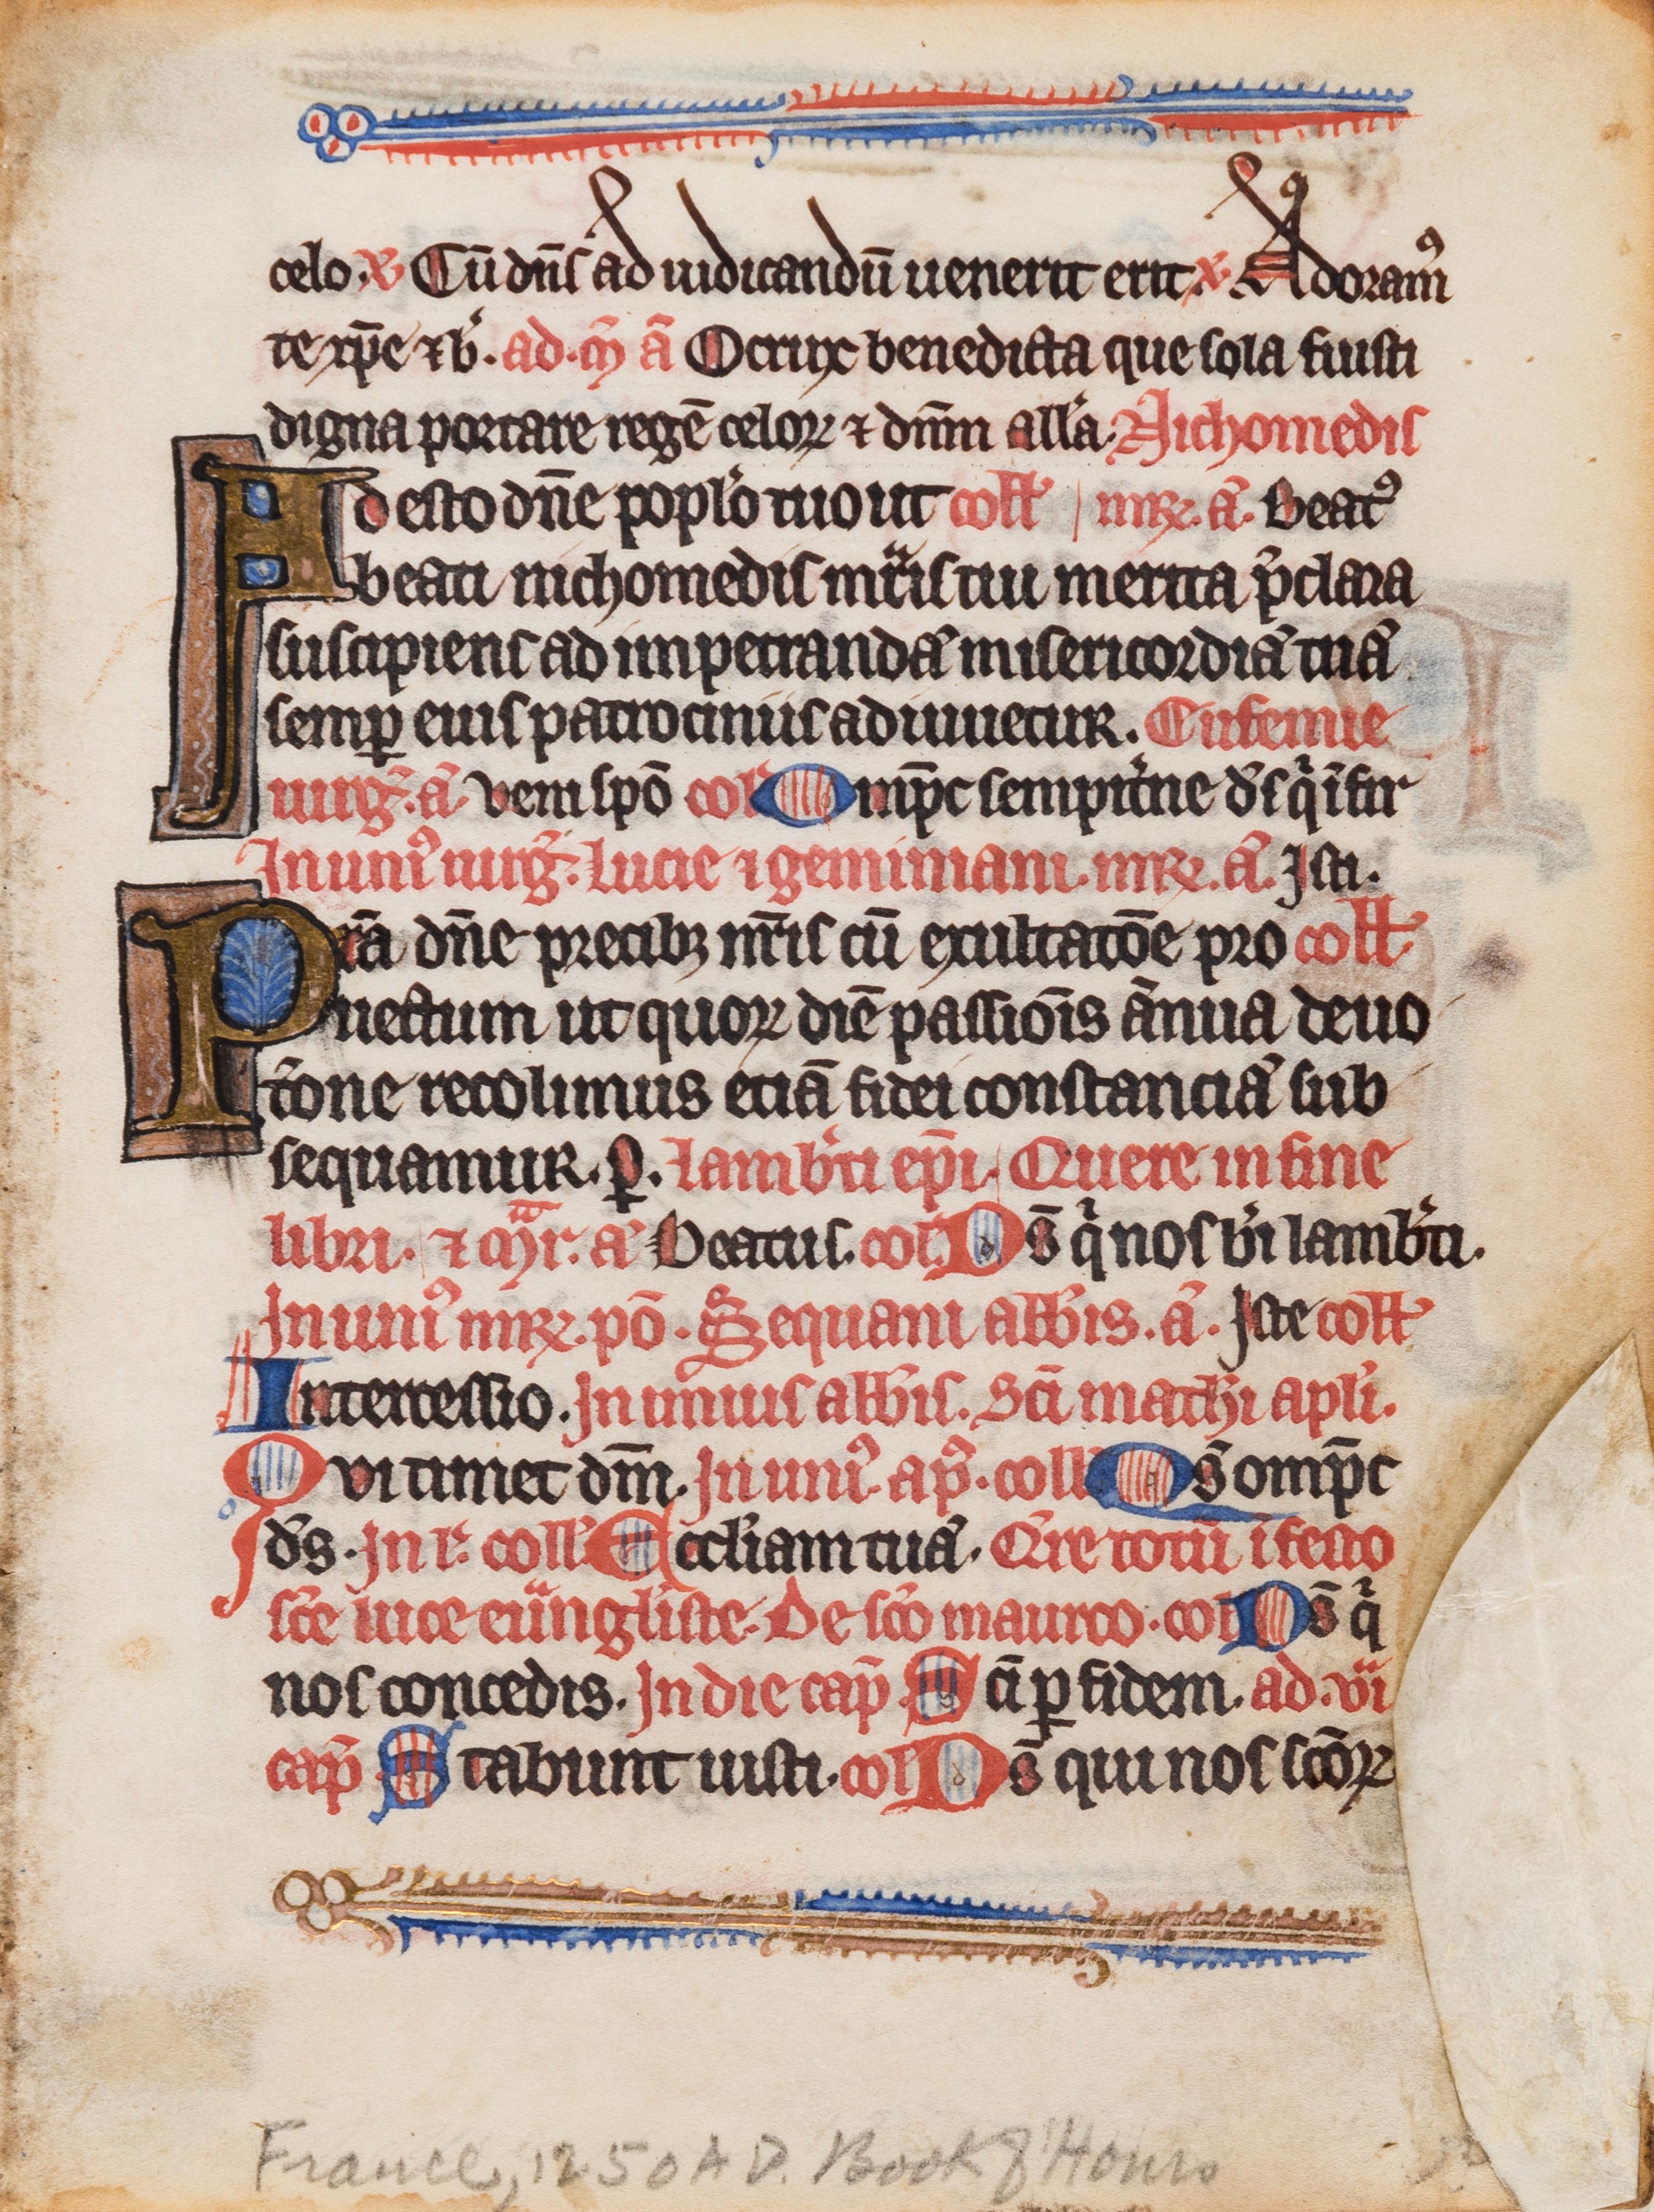 celo. v̄ Cū dn̄s ad iudicandū uenerit erit. v̄. Adoramꝰ
te xp̄e ⁊ b̓. ad. m̄ ā O crux benedicta que sola fuisti
digna portare regē celoꝝ ⁊ dn̄m all'a. Nichomedis
Adesto dn̄e popl'o tuo ut coll' mrꝝ. ā. Beatꝰ
beati nichomedis mr̄is tui merita p̄clara
suscipiens ad impetrandā misericordiā tuā
semꝑ eius patrociniis adiuuetur. Eufemie
uirḡ. ā. veni spō col' Omp̄c sempit̓ne d's q̄ īfir
In uniꝰ uirḡ. Lucie ⁊ geminiani. mrꝝ. ā. Isti.
Pr̄a dn̄e precibꝫ mr̄is cū exultatōe pro coll'
uectum ut quoꝝ diē passiōis ānua deuo
t̄one recolimus etiā fidei constanciā sub
sequamur. ꝑ. Lamb̓ti ep̄i. Quere in fine
libri. ⁊ mr̄. ā Beatus. col'. Ds̄ q̄ nos b̓i lamb̓ti.
In uniꝰ mrꝝ. pō. Sequani abb̓is. ā. Iste coll'
Intercessio. In uniuis abb̓is. Sc̄i mathi apl'i.
Qvi timet dm̄. In uniꝰ. ap̄. coll' Os̄ omp̄c
d's. In l'. coll'. Eccl'iam tuā. Q̄re totū ī festo
sc̄e luce euāngl'iste. De sc̄o maurco. col' Ds̄ q̄
nos concedis. In die cap̄. Sc̄i ꝑ fidem. ad. vi
cap̄. Stabunt iusti. col' Ds̄ qui nos sc̄oꝝ
France, 1250 A D. Book of Hours